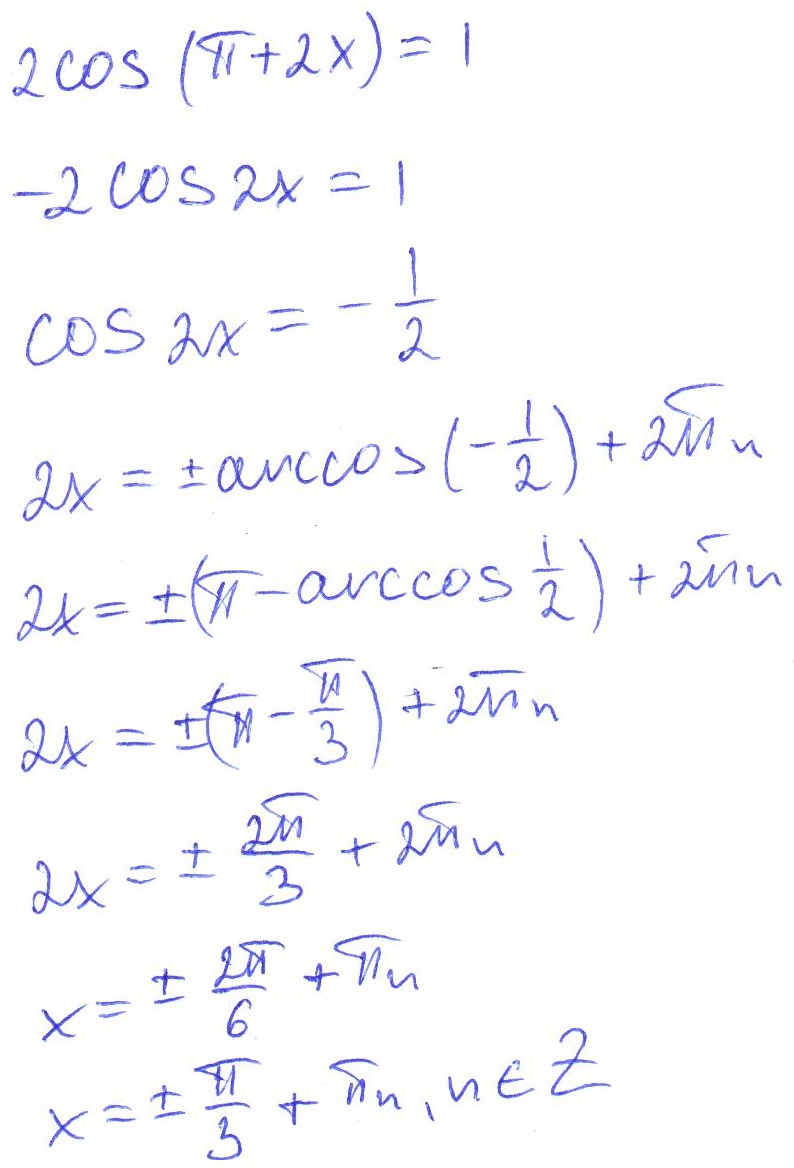 2cos (π+2x) = 1
-2 cos 2x = 1
cos 2x = - 1/2
2x = ± arccos (- 1/2) + 2πn
2x = ± (π - arccos 1/2) + 2πn
2x = ± (π - π/3) + 2πn
2x = ± 2π/3 + 2πn
x = ± 2π/6 + πn
x = ± π/3 + πn, n ∈ Z